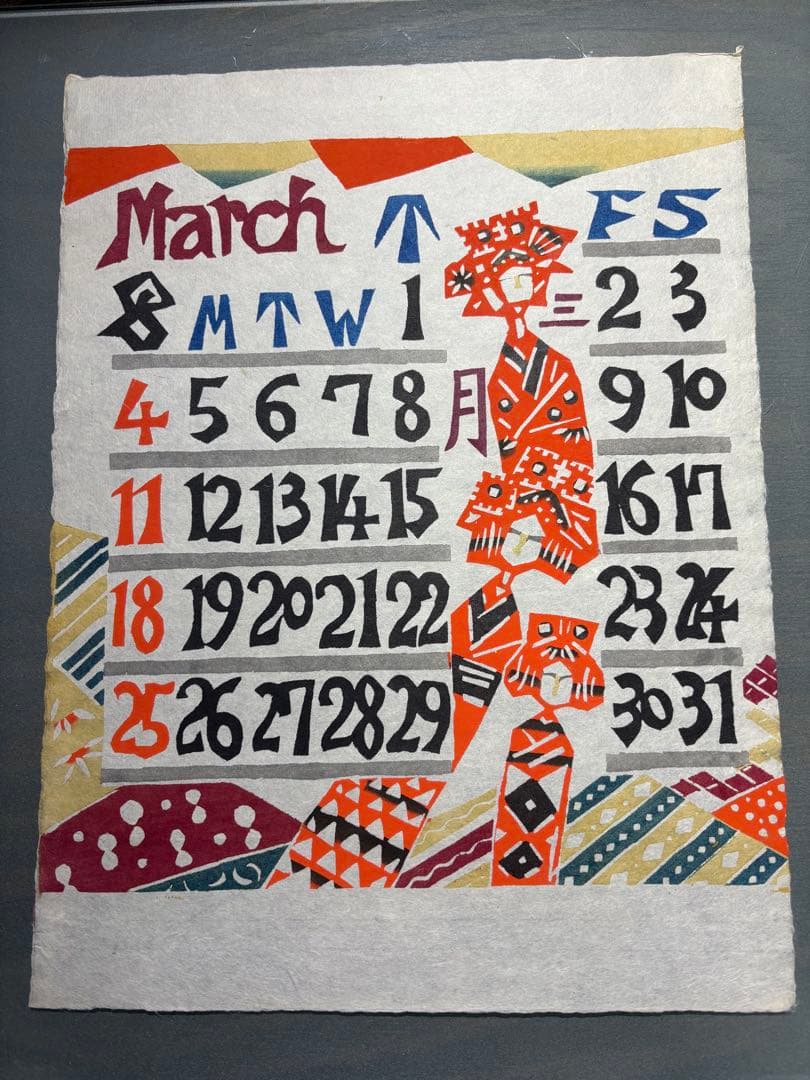 March T F S
S M T W 1 三 2 3
4 5 6 7 8 月 9 10
11 12 13 14 15 16 17
18 19 20 21 22 23 24
25 26 27 28 29 30 31